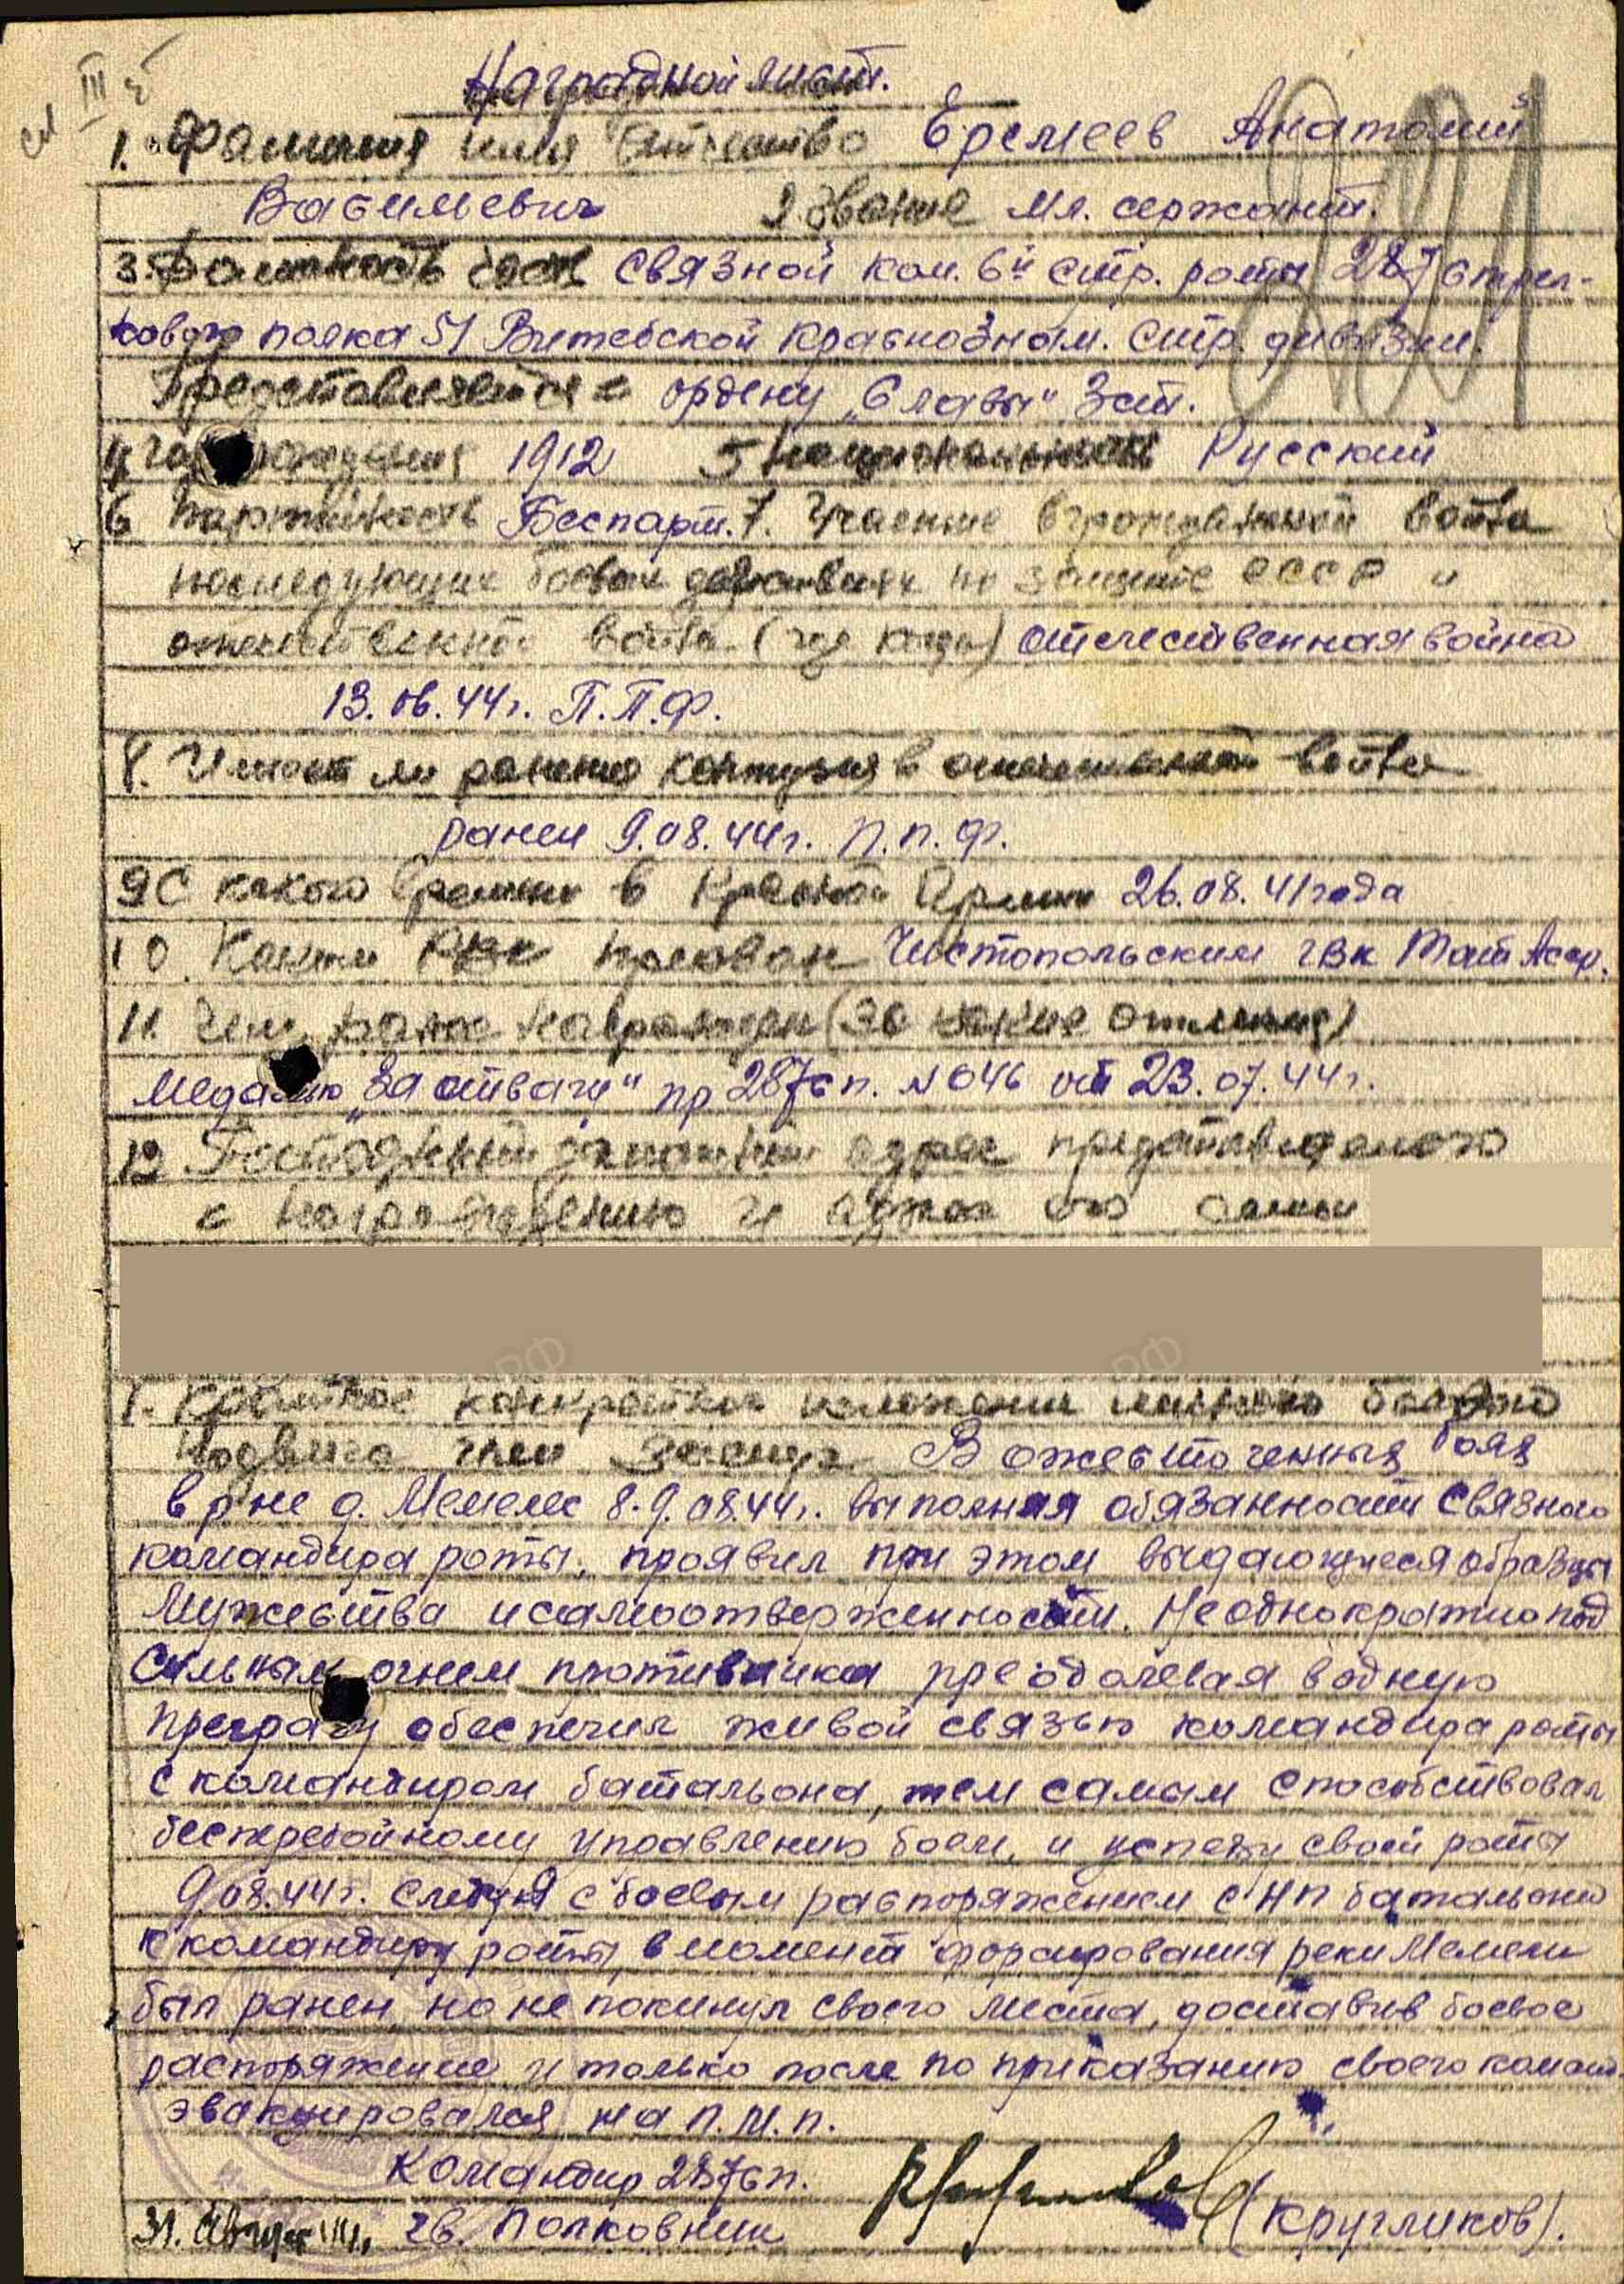 Наградной лист.
1. Фамилия имя Отчество Еремеев Анатолий
Васильевич 2 Звание мл. сержант.
3. Должность часть Связной ком. 6й стр. роты 287 стрел-
кового полка 51 Витебской краснознам. стр. дивизии.
Представляется к ордену „Славы" 3 ст.
4 год рождения 1912 5 Национальность Русский
6 Партийность Беспарт. 7. Участие в гражданской война
последующих боевых действиях по защите СССР и
отечественной война (где когда) отечественная война
13.06.44г. П.П.Ф.
8. Имеет ли ранения контузия в отечественной война
ранен 9.08.44г. П.П.Ф.
9 С какого времени в Красной Армии 26.08.41 года
10. Каким РВК призван Чистопольским ГВК Тат Асср.
11. Чем ранее награжден (за какие отличия)
Медалью „За отвагу" пр 287 сп. N 046 от 23.07.44г.
12 Постоянный домашний адрес представляемого
к награждению и адрес его семьи
РФ РФ
1. Краткое конкретное изложение личного боевого
подвига или заслуг. В ожесточенных боях
в р-не д. Мемеле 8-9.08.44г. выполняя обязанности связного
командира роты, проявил при этом выдающиеся образцы
мужества и самоотверженности. Неоднократно под
сильным огнем противника преодолевая водную
преграду обеспечил живой связью командира роты
с командиром батальона, тем самым способствовал
бесперебойному управлению боем, и успеху своей роты
9.08.44г. следуя с боевым распоряжением с НП батальона
к командиру роты, в момент форсирования реки Мемели
был ранен, но не покинул своего места, доставив боевое
распоряжение и только после по приказанию своего команд.
эвакуировался на П.М.П.
Командир 287 сп.
31. Август 44г. гв. Полковник (Кругликов).